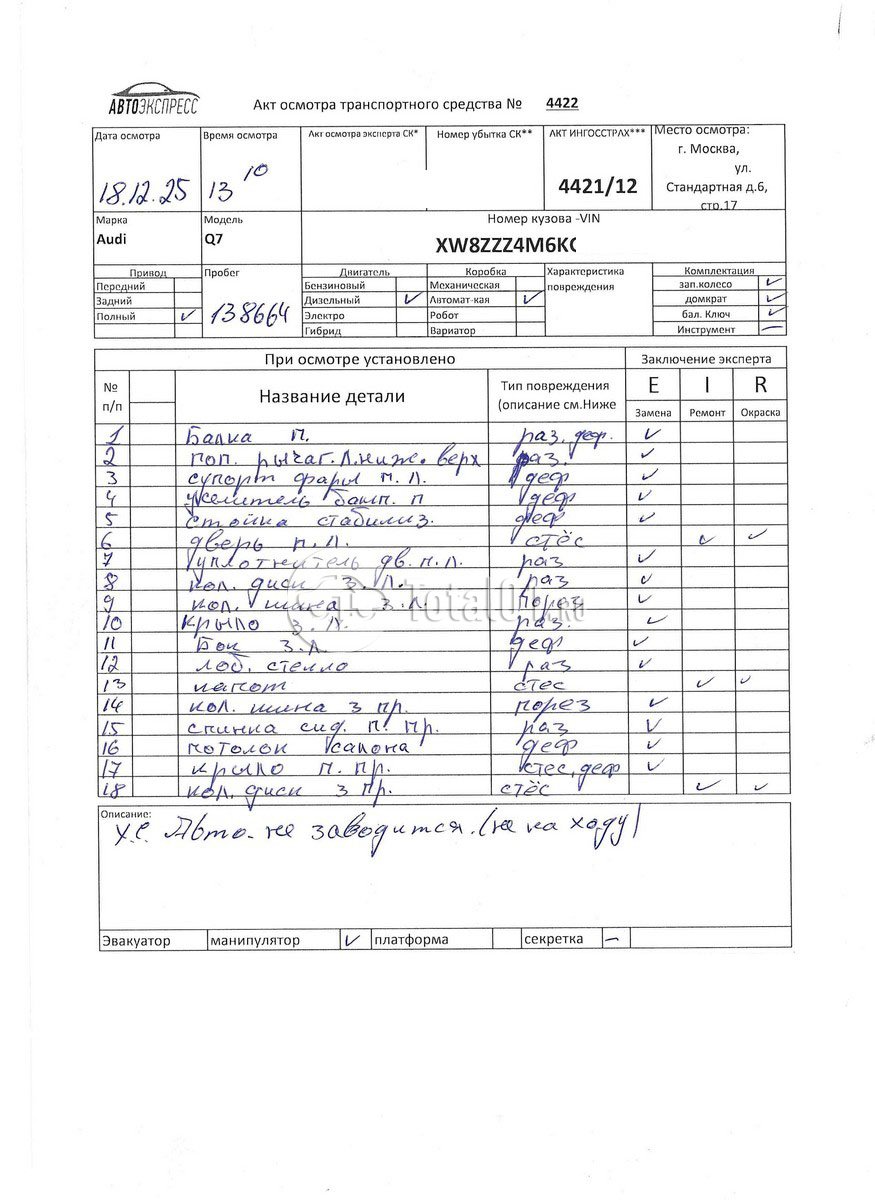 АВТОЭКСПРЕСС
Акт осмотра транспортного средства № 4422
Дата осмотра Время осмотра Акт осмотра эксперта СК* Номер убытка СК** АКТ ИНГОССТРАХ*** Место осмотра:
18.12.25 13 10 4421/12 г. Москва,
ул.
Стандартная д.6,
стр.17
Марка Модель Номер кузова -VIN
Audi Q7 XW8ZZZ4M6K
Привод Пробег Двигатель Коробка Характеристика Комплектация
Передний Бензиновый Механическая повреждения зап.колесо ✓
Задний Дизельный ✓ Автомат-кая ✓ домкрат ✓
Полный ✓ 138664 Электро Робот бал. Ключ ✓
Гибрид Вариатор Инструмент —
При осмотре установлено Заключение эксперта
№ п/п Название детали Тип повреждения (описание см.Ниже E I R
Замена Ремонт Окраска
1 Балка п. раз. деф. ✓
2 поп. рычаг. Л. ниж. верх раз. ✓
3 супорт фары п. л. деф ✓
4 усилитель бамп. п деф ✓
5 стойка стабилиз. деф ✓
6 дверь п. л. стёс ✓ ✓
7 уплотнитель дв. п. л. раз ✓
8 кол. диск з. л. раз ✓
9 кол. шина з. л. порез ✓
10 крыло з. л. раз. ✓
11 Бок з. л деф ✓
12 лоб. стекло раз ✓
13 капот стес ✓ ✓
14 кол. шина з пр. порез ✓
15 спинка сид. п. пр. раз ✓
16 потолок салона деф ✓
17 крыло п. пр. стес, деф ✓
18 кол. диск з пр. стёс ✓ ✓
Total01.ru
Описание:
Авто. не заводится. (не на ходу)
Эвакуатор манипулятор ✓ платформа секретка —